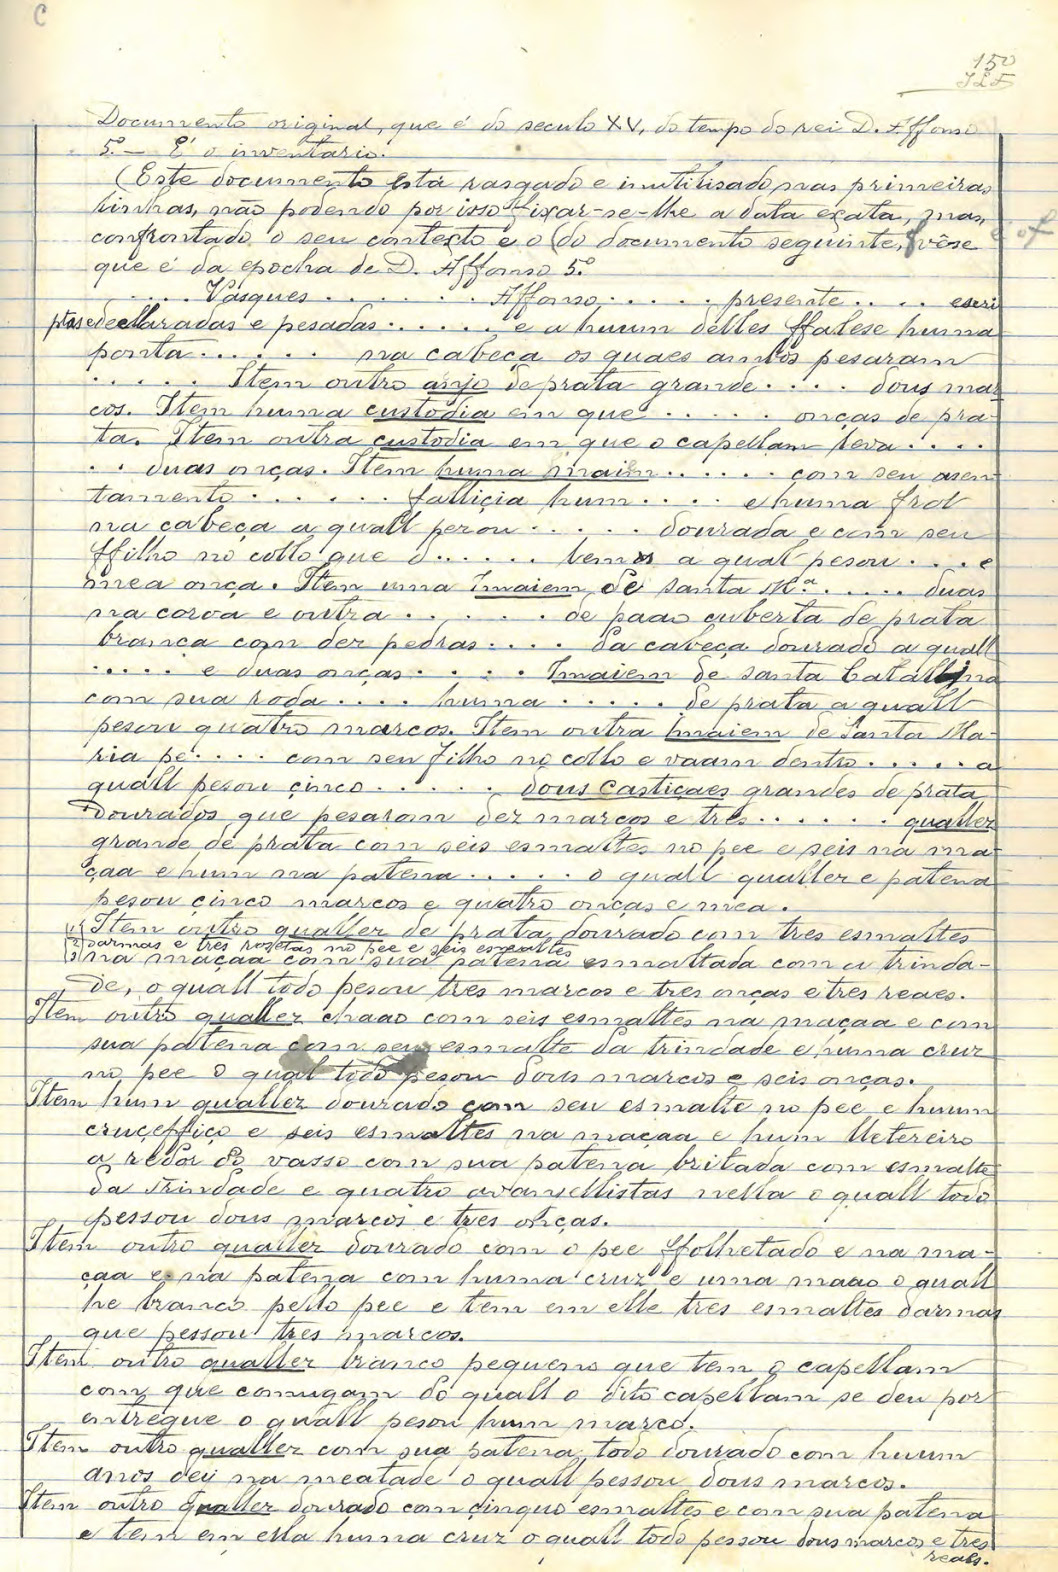 C
150
Documento original, que é do seculo XV, do tempo do rei D. Affonso
5.º — É o inventario.
(Este documento está rasgado e inutilisado nas primeiras
linhas, não podendo por isso fixar-se-lhe a data exata, mas,
confrontado o seu contexto e o do documento seguinte, vêse
que é da epocha de D. Affonso 5.º
. . . . Vasques . . . . . . . Affonso . . . . . presente . . . . escri
ptas e declaradas e pesadas . . . . . e a huum delles ffalese huma
ponta . . . . . . na cabeça os quaes ambos pesaram
. . . . . Item outro anjo de prata grande . . . . dous mar
cos. Item huma custodia em que . . . . . . onças de pra-
ta. Item outra custodia em que o capellam leva . . . .
. . duas onças. Item huma imaiem . . . . . . com seu asen
tamento . . . . . . falliçia hum . . . . e huma frol
na cabeça a quall pezou . . . . . dourada e com seu
ffilho no collo que d . . . . . tem a qual pesou . . . . e
mea onça. Item uma Imaiem de santa M.ª . . . . . . duas
na coroa e outra . . . . . . de paao cuberta de prata
branca com dez pedras . . . . da cabeça dourado a quall
. . . . . e duas onças . . . . . Imaiem de santa Catallina
com sua roda . . . . huma . . . . . de prata a quall
pesou quatro marcos. Item outra Imaiem de Santa Ma-
ria pe . . . . com seu filho no collo e vaam dentro . . . . . a
quall pesou çinco . . . . . . dous castiçaes grandes de prata
Dourados que pesarom dez marcos e tres . . . . . . quallez
grande de prata com seis esmaltes no pee e seis na ma-
çaa e hum na patena . . . . . o quall quallez e patena
pesou çinco marcos e quatro onças e mea.
Item outro quallez de prata dourado com tres esmaltes
darmas e tres rosetas no pee e seis esmaltes
na maçaa com sua patena esmaltada com a trinda-
de, o quall todo pesou tres marcos e tres onças e tres reaes.
Item outro quallez chaao com seis esmaltes na maçaa e com
sua patena com seu esmalte da trindade e huma cruz
no pee o qual todo pesou dous marcos e seis onças.
Item hum quallez dourado com seu esmalte no pee e huum
cruçeffiço e seis esmaltes na maçaa e hum lletereiro
a redor do vasso com sua patena britada com esmalte
da Trindade e quatro avansellistas nella o quall todo
pessou dous marcos e tres onças.
Item outro quallez dourado com o pee ffolhetado e na ma-
çaa e na patena com huma cruz e uma maao o quall
he branco pello pee e tem em elle tres esmaltes darmas
que pessou tres marcos.
Item outro quallez branco pequeno que tem o capellam
com que comugam do quall o dito capellam se deu por
entregue o quall pesou hum marco.
Item outro quallez com sua patena todo dourado com huum
anos dei na meatade o quall pessou dous marcos.
Item outro quallez dourado com çinquo esmaltes e com sua patena
e tem em ella huma cruz o quall todo pessou dous marcos e tres
reaes.